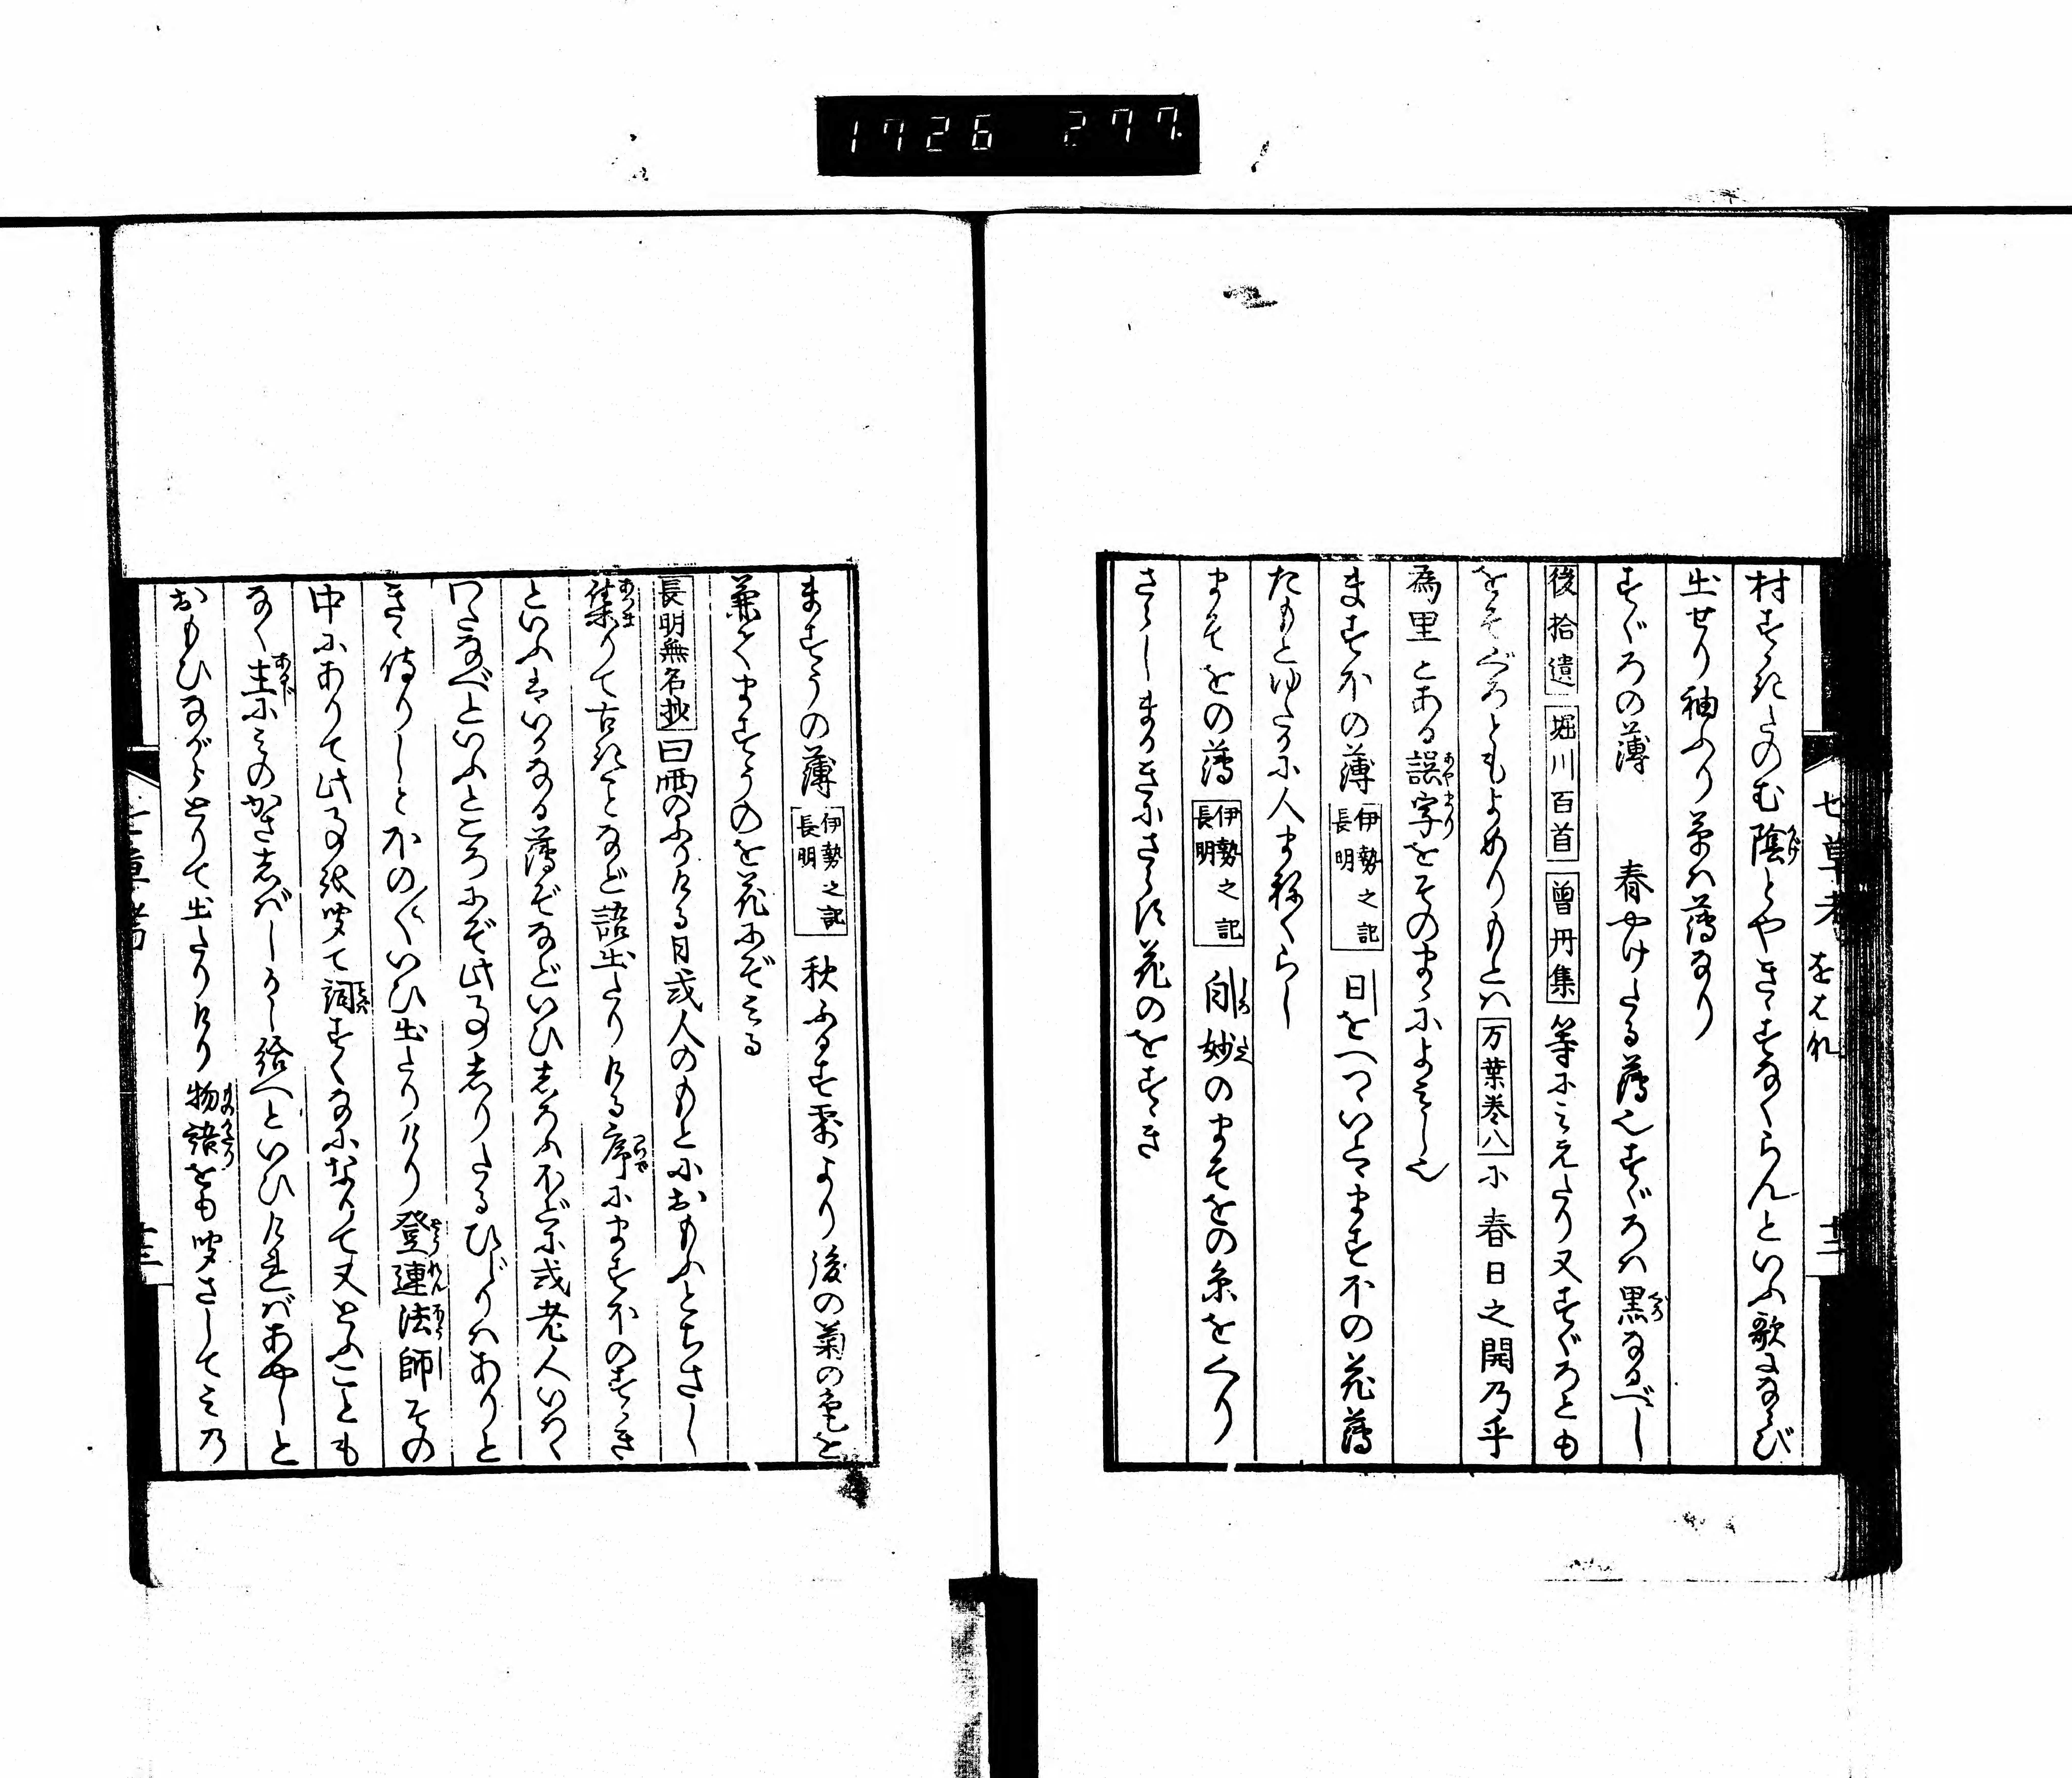 1726 277
七草考 をはれ 十二
村すゝきたのむ陰とやきゝすなくらんといふ歌はならび
出せり袖ふり草は薄なり
すぐろの薄 春やけたる薄也すぐろは黒なるべし
後拾遺 堀川百首 曾丹集 等にみえたり又すぐろとも
をそぐろともよめりもとは 万葉巻八 に春日之開乃乎
為里とある誤字をそのまゝによみし也
ますほの薄 伊勢之記 長明 日をへつゝいとゝますほの花薄
たもとゆたかに人まねくらし
まそをの薄 伊勢之記 長明 白妙のまそをの糸をくり
さらしまかきにさらす花のをすゝき
ますうの薄 伊勢之記 長明 秋ふかき霜より後の菊の色を
兼てますうのを花にぞみる
長明無名抄 曰雨のふりける日或人のもとにおもふとちさし
集りて古きことなど語出たりける序にますほのすゝき
といふはいかなる薄ぞなどいひしろふほどに或老人いはく
わたなべといふところにぞ此事しりたるひじりはありと
きゝ侍りしとほの〳〵いひ出たりけり登連法師その
中にありて此事を聞て詞すくなになりて又とふことも
なく主にみのかさしばしかし給へといひければあやしと
おもひながらとりて出たりけり物語をも聞さしてみの